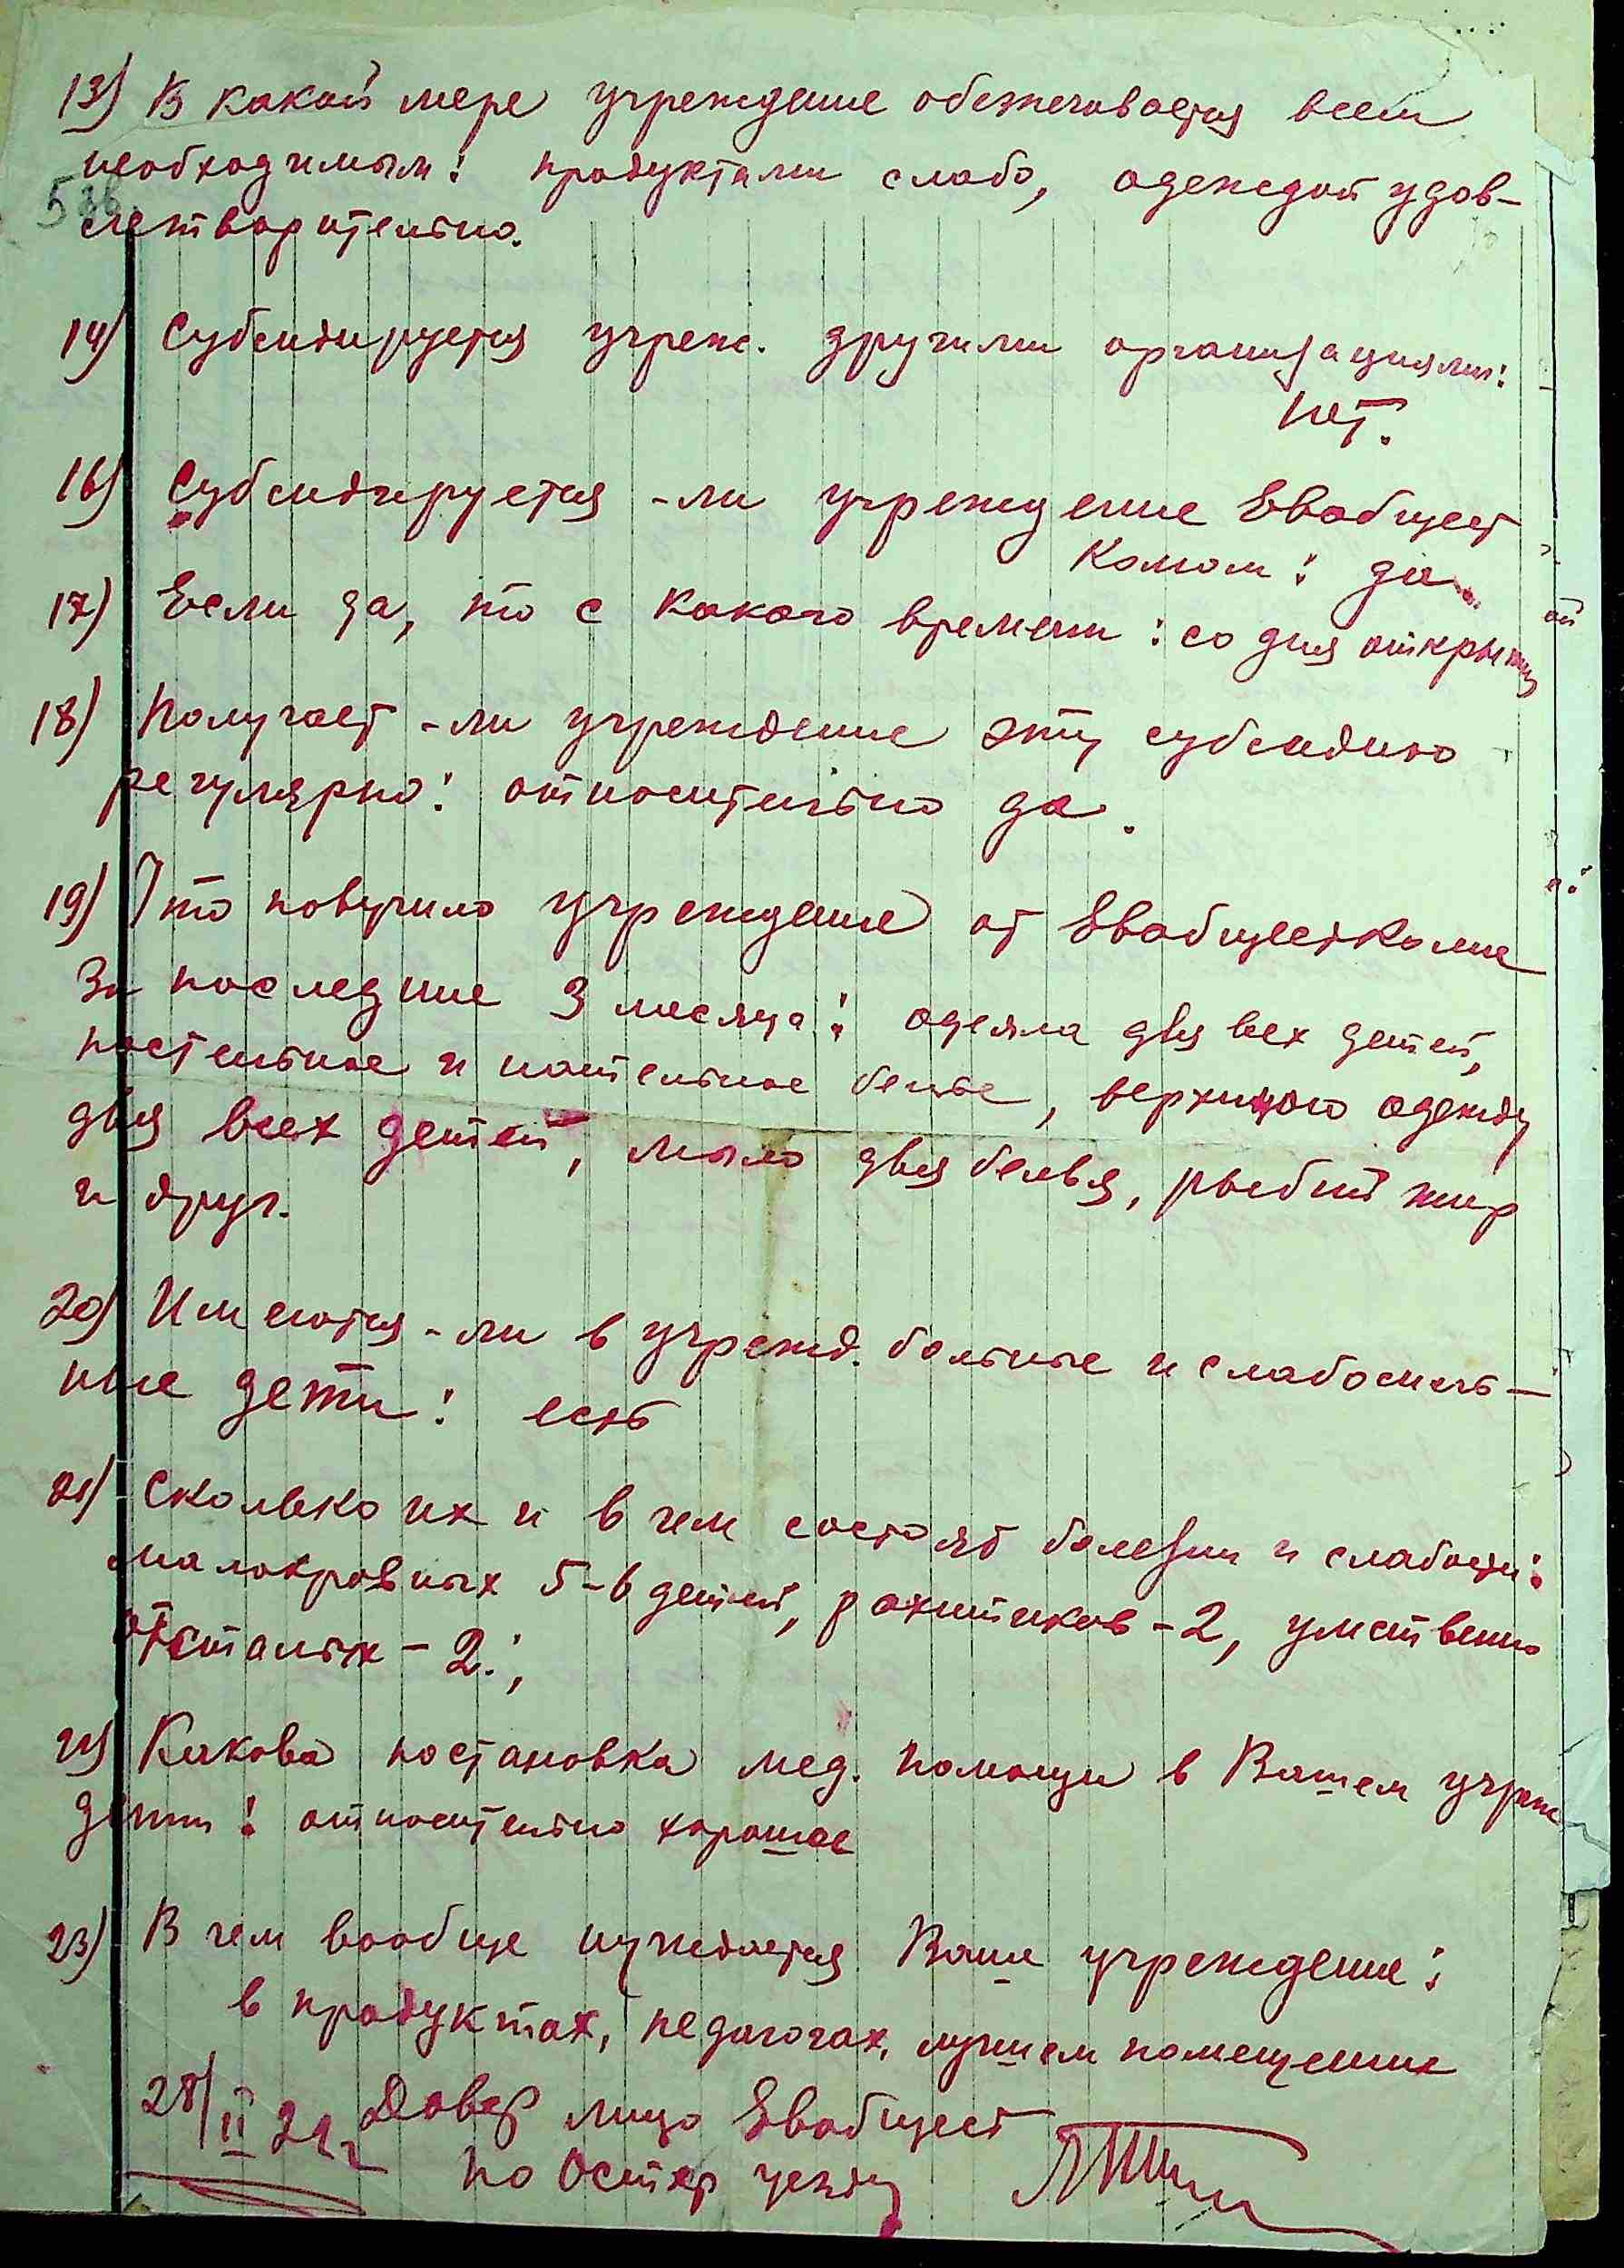 13) В какой мере учреждение обезпечивается всем
необходимым: продуктами слабо, одеждой удов-
летворительно.
14) Субсидируется учрежд. другими организациями:
нет.
16) Субсидируется-ли учреждение Евобщест
Комом: да.
17) Если да, то с какого времени: со дня открытия
18) Получает-ли учреждение эту субсидию
регулярно: относительно да.
19) Что получило учреждение от Евобщесткома
За последние 3 месяца: одеяла для всех детей,
постельное и нательное белье, верхнюю одежду
для всех детей, мыло для белья, рыбий жир
и друг.
20) Имеются-ли в учрежд. больные и слабосиль-
ные дети: есть
21) Сколько их и в чем состоят болезни и слабости:
малокровных 5-6 детей, рахитиков-2, умственно
отсталых-2.;
22) Какова постановка мед. помощи в Вашем учреж
дении: относительно хорошое
23) В чем вообще нуждается Ваше учреждение:
в продуктах, педагогах, лучшем помещении
28/II 24 г Довер лицо Евобщест
по Остер уезду